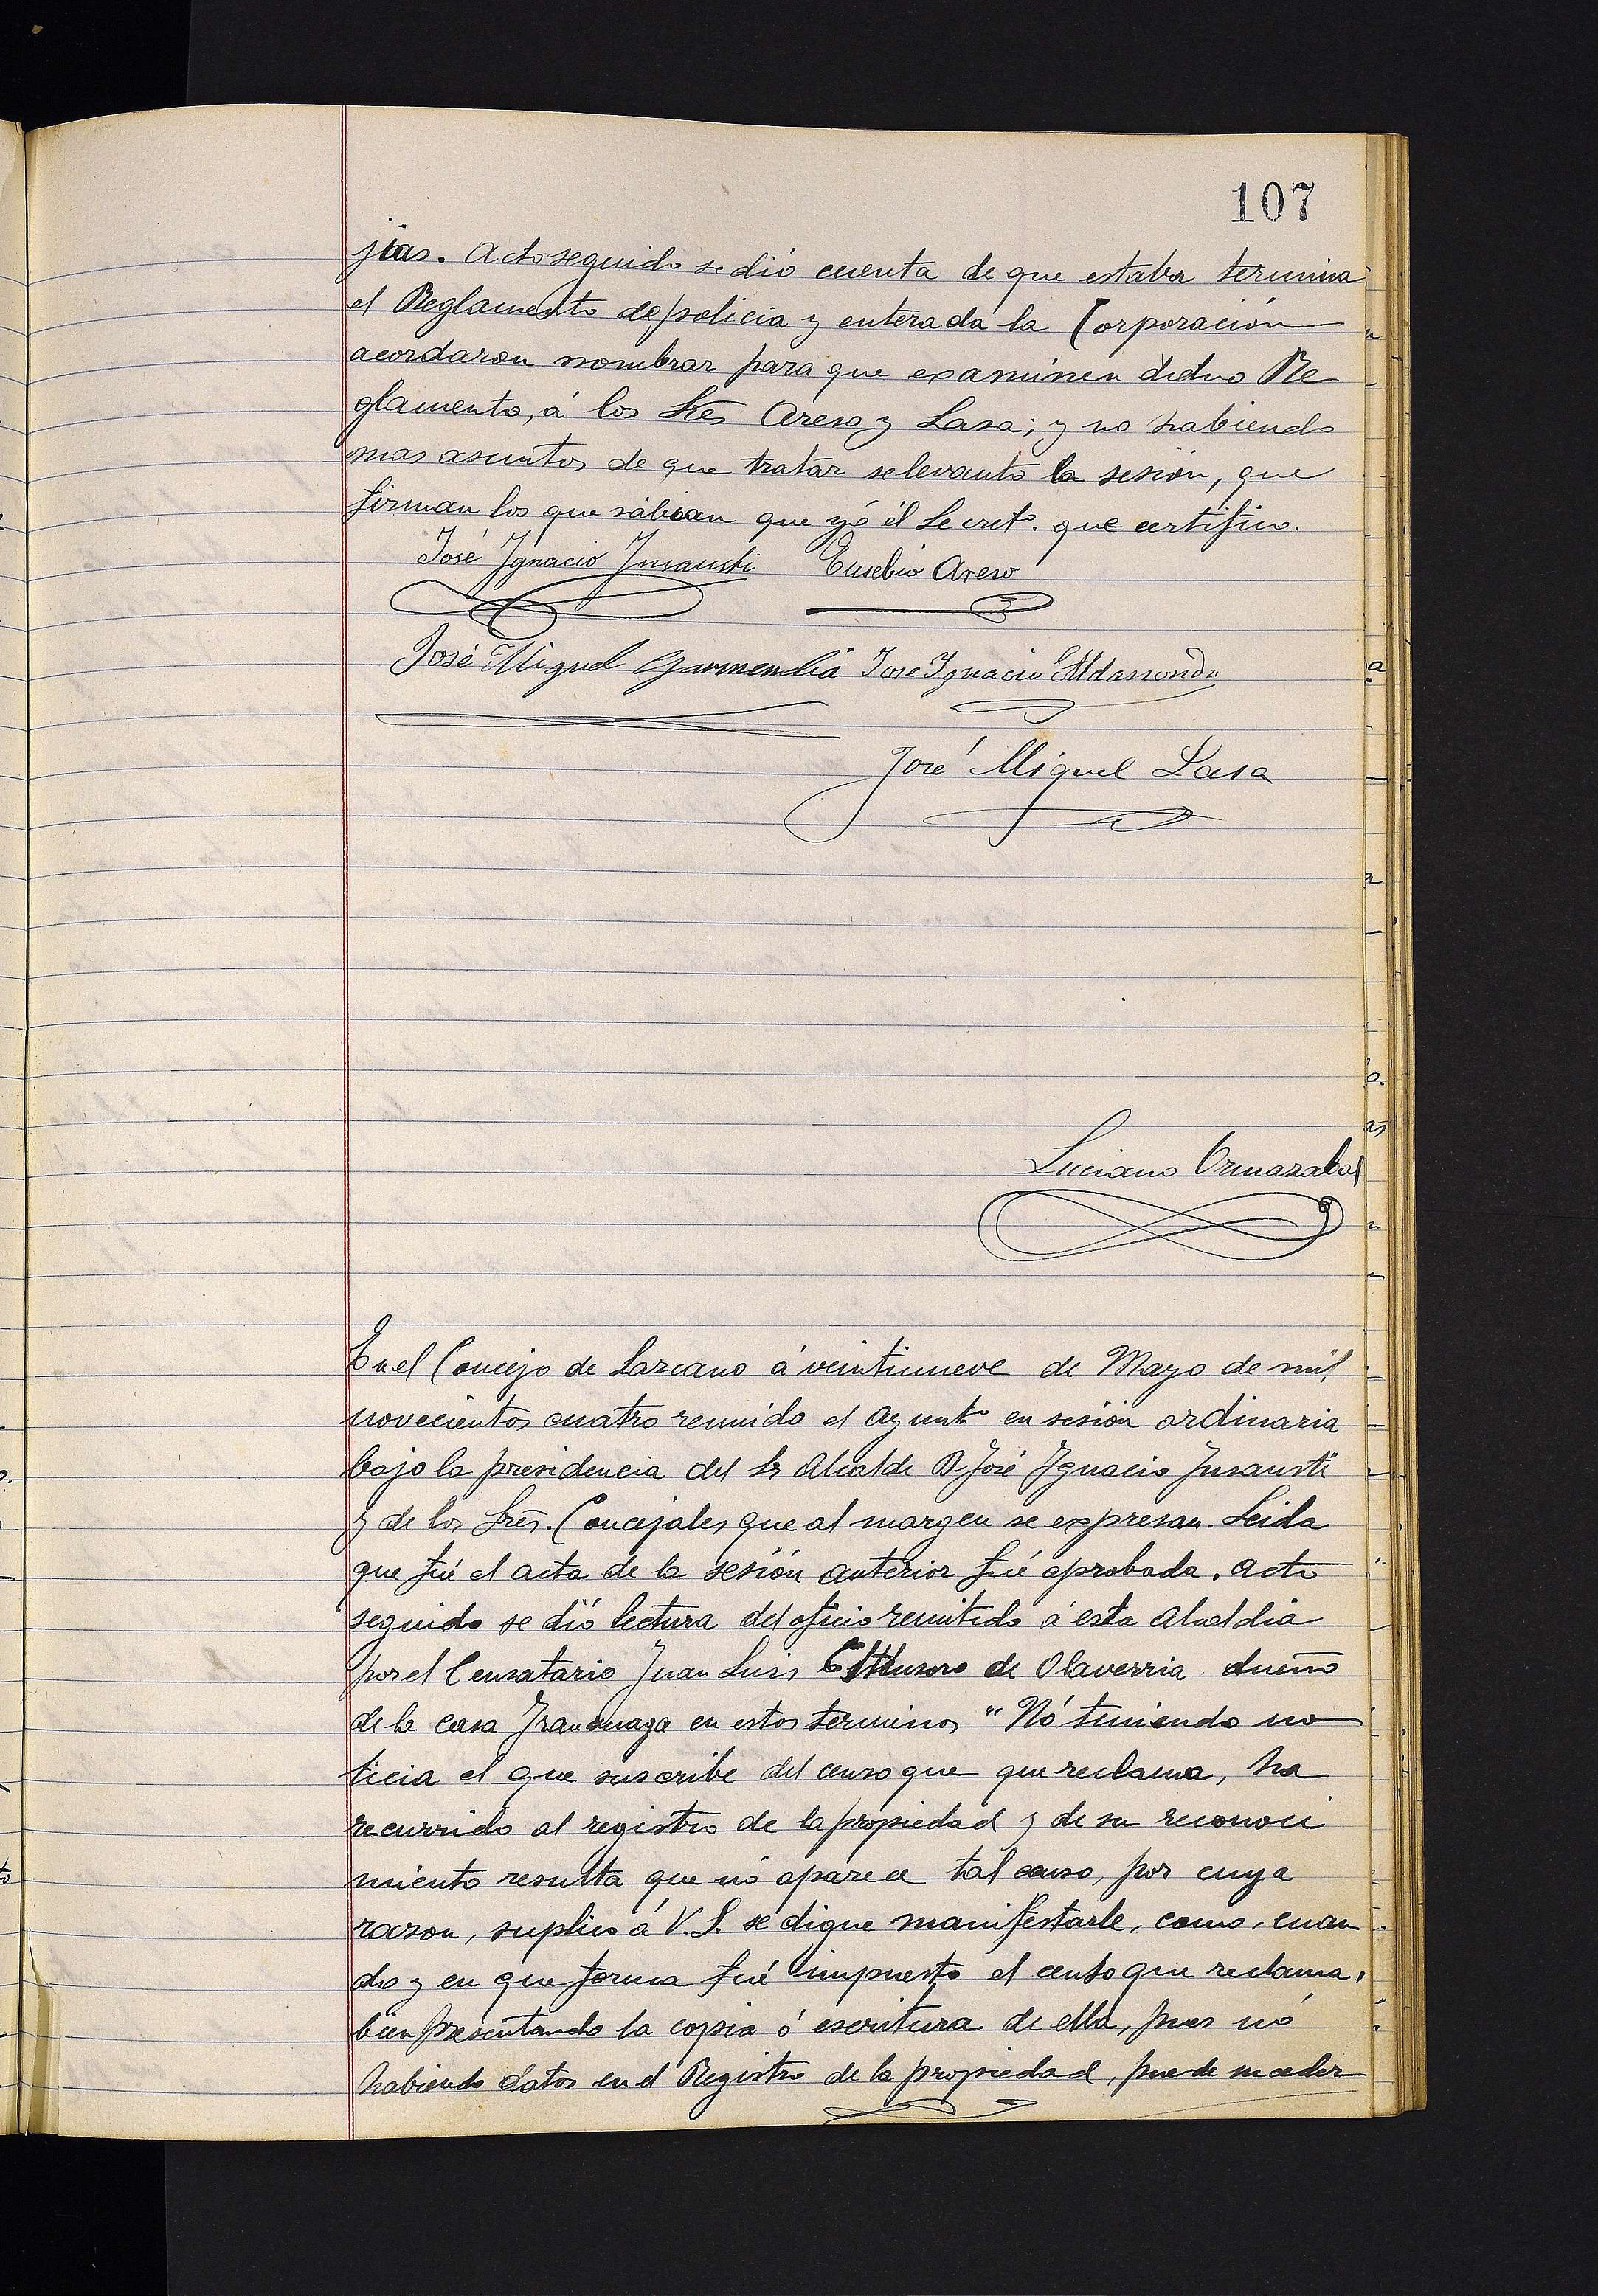 107
jias. Acto seguido se dió cuenta de que estaba termina
el Reglamento de policia y enterada la Corporación
acordaron nombrar para que examinen dicho Re
glamento, á los Sres Areso y Lasa; y no habiendo
mas asuntos de que tratar se levantó la sesión, que
firman los que sabian que yó él Secret.º que certifico.
José Ignacio Insausti Eusebio Areso
José Miguel Garmendia José Ignacio Aldasoro
José Miguel Lasa
Luciano Ormazabal
En el Concejo de Lazcano á veintinueve de Mayo de mil
novecientos cuatro reunido el Ayuntº en sesión ordinaria
bajo la presidencia del Sr Alcalde D José Ignacio Insausti
y de los Sres. Concejales que al margen se expresan. Leida
que fué el acta de la sesión anterior fué aprobada. Acto
seguido se dió lectura del oficio remitido á esta Alcaldia
por el Censatario Juan Luis de Olaverria dueño
de la casa en estos terminos "Nó teniendo no
ticia el que suscribe del censo que que reclama, ha
recurrido al registro de la propiedad y de su reconoci
miento resulta que nó aparece tal censo, por cuya
razon, suplico á V.S. se digne manifestarle, como, cuan
do y en que forma fué impuesto el censo que reclama,
bien presentando la copia ó escritura de ella, pues nó
habiendo datos en el Registro de la propiedad, puede suceder